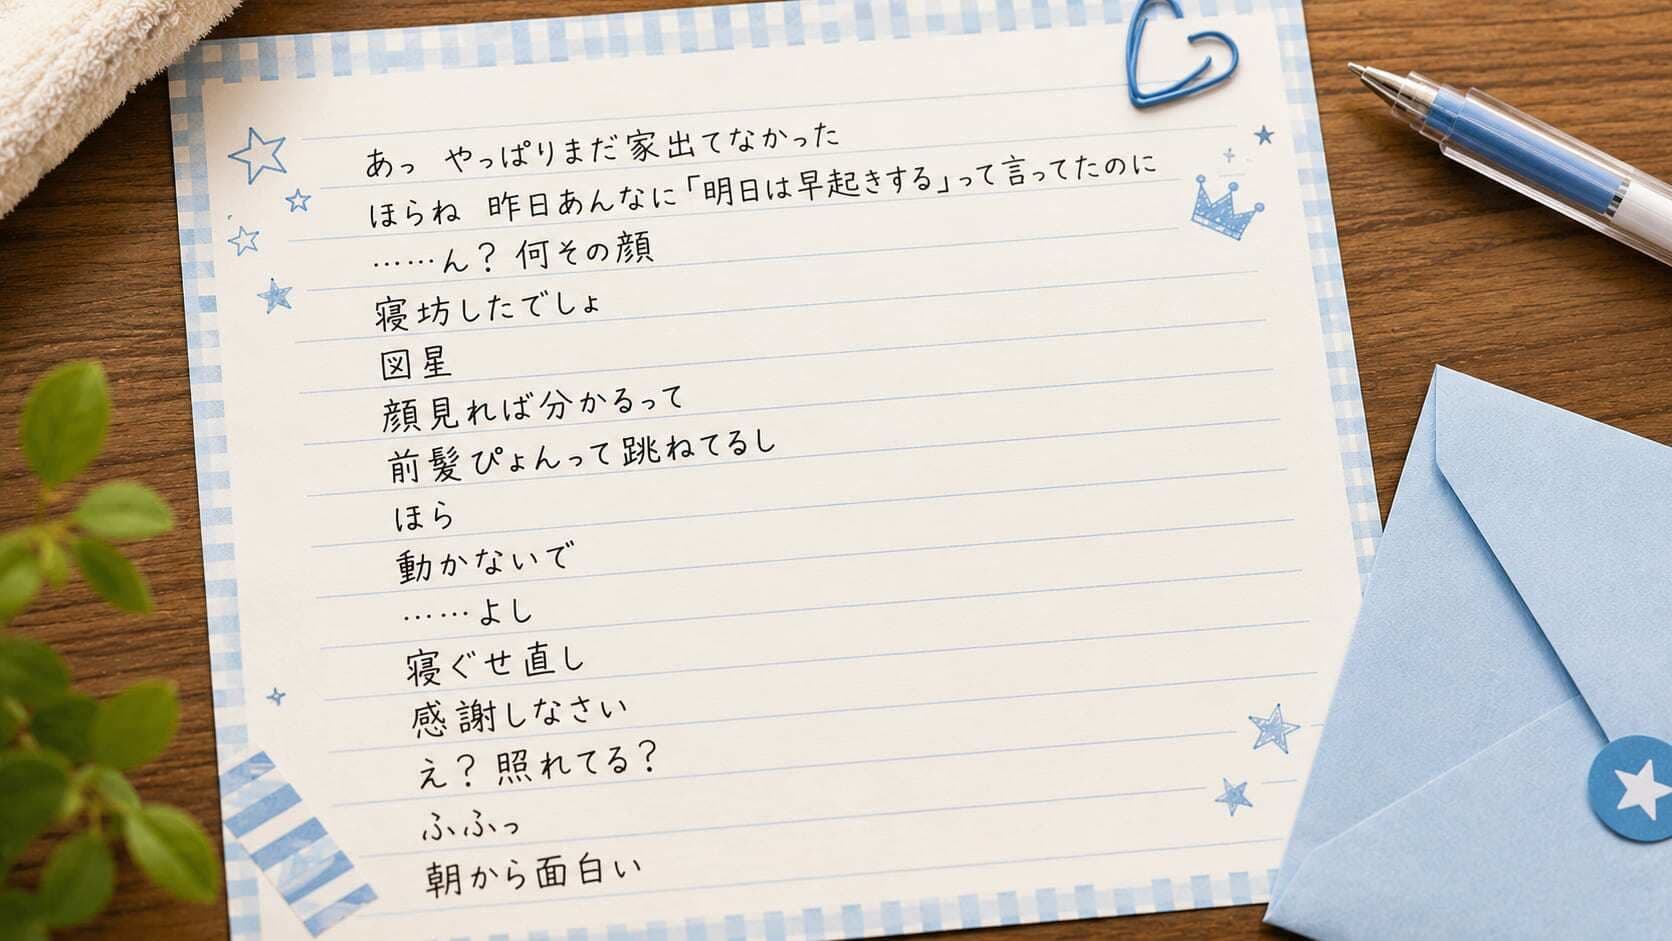 あっ やっぱりまだ家出てなかった
ほらね 昨日あんなに「明日は早起きする」って言ってたのに
……ん？ 何その顔
寝坊したでしょ
図星
顔見れば分かるって
前髪ぴょんって跳ねてるし
ほら
動かないで
……よし
寝ぐせ直し
感謝しなさい
え？ 照れてる？
ふふっ
朝から面白い